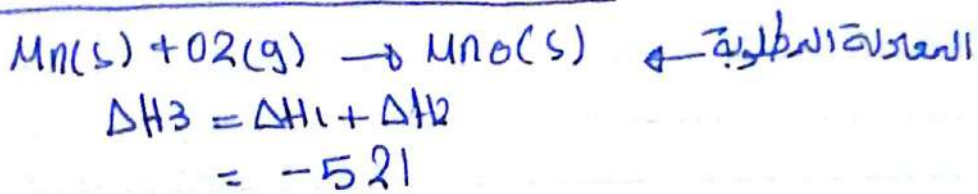 Mn(s) + O2(g) → MnO(s) ← المعادلة المطلوبة
ΔH3 = ΔH1 + ΔH2
= -521